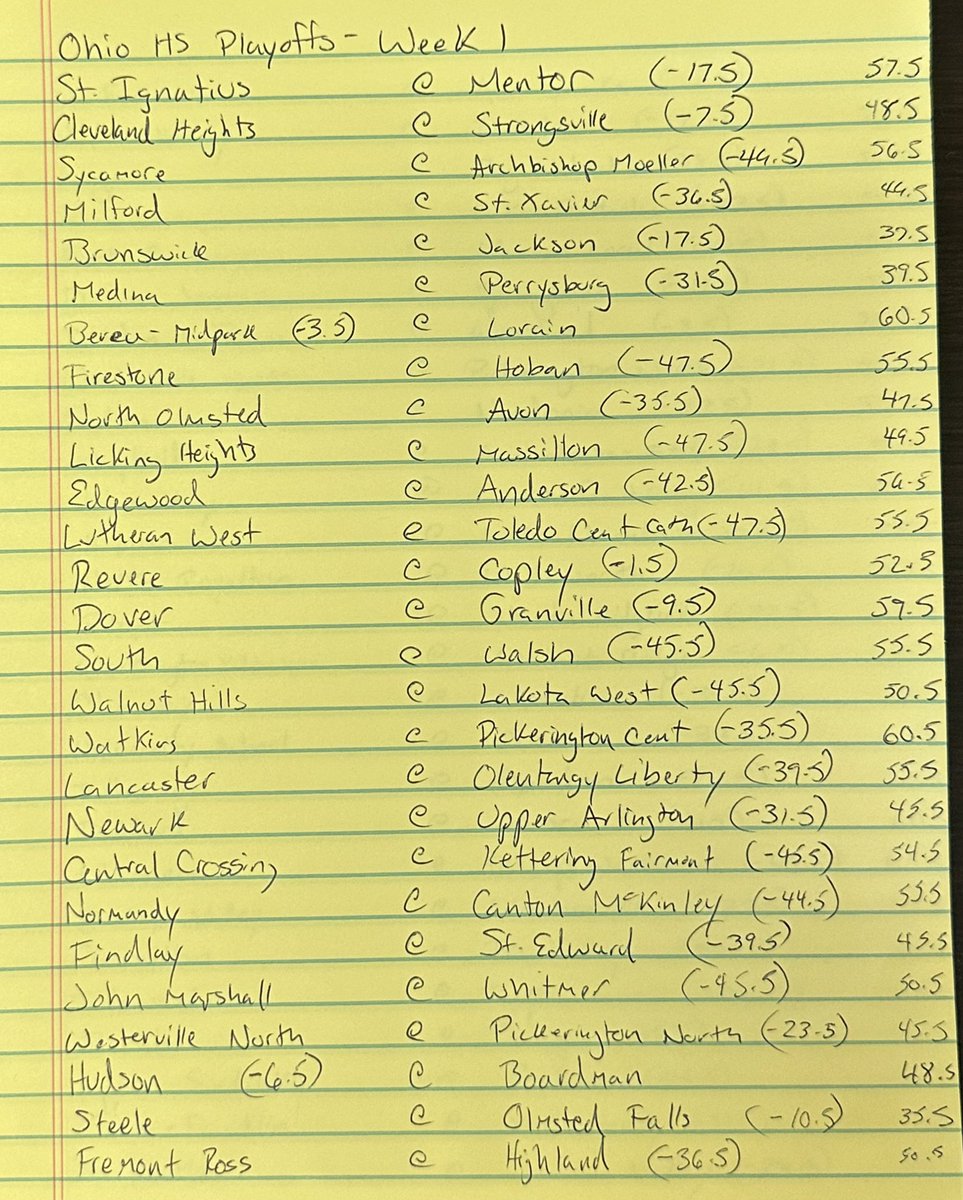 Ohio HS Playoffs - Week 1
St. Ignatius @ Mentor (-17.5) 57.5
Cleveland Heights @ Strongsville (-7.5) 48.5
Sycamore @ Archbishop Moeller (-44.5) 56.5
Milford @ St. Xavier (-36.5) 44.5
Brunswick @ Jackson (-17.5) 37.5
Medina @ Perrysburg (-31.5) 39.5
Berea-Midpark (-3.5) @ Lorain 60.5
Firestone @ Hoban (-47.5) 55.5
North Olmsted @ Avon (-35.5) 47.5
Licking Heights @ Massillon (-47.5) 49.5
Edgewood @ Anderson (-42.5) 56.5
Lutheran West @ Toledo Cent Cath (-47.5) 55.5
Revere @ Copley (-1.5) 52.5
Dover @ Granville (-9.5) 59.5
South @ Walsh (-45.5) 55.5
Walnut Hills @ Lakota West (-45.5) 50.5
Watkins @ Pickerington Cent (-35.5) 60.5
Lancaster @ Olentangy Liberty (-39.5) 55.5
Newark @ Upper Arlington (-31.5) 45.5
Central Crossing @ Kettering Fairmont (-45.5) 54.5
Normandy @ Canton McKinley (-44.5) 55.5
Findlay @ St. Edward (-39.5) 45.5
John Marshall @ Whitmer (-45.5) 50.5
Westerville North @ Pickerington North (-23.5) 45.5
Hudson (-6.5) @ Boardman 48.5
Steele @ Olmsted Falls (-10.5) 35.5
Fremont Ross @ Highland (-36.5) 50.5